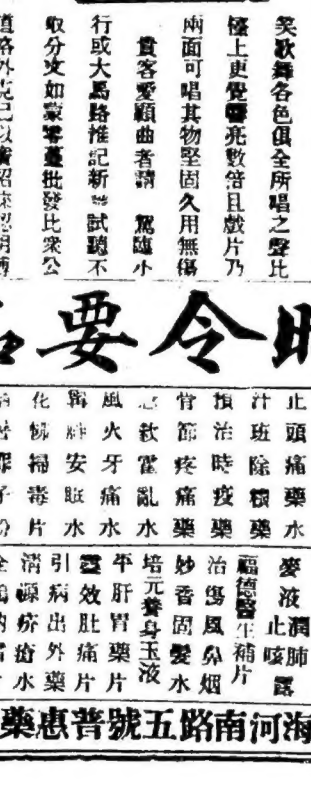 笑歌舞各色俱全所唱之聲比
檯上更覺響亮數倍且戲片乃
兩面可唱其物堅固久用無傷
貴客愛顧曲者請 駕臨小
行或大馬路惟記新 試聽不
取分文如蒙零躉批發比衆公
道路外
要令時
止頭痛藥水
汗班除穢藥
預治時疫藥
骨節疼痛藥
急救霍亂水
風火牙痛水
安眠水
化掃毒片
麥液潤肺止咳露
福德醫生補片
治傷風鼻烟
妙香固髮水
培元養身玉液
平肝胃藥片
靈效肚痛片
引病出外藥
清源疥瘡水
海河南路五號普惠藥